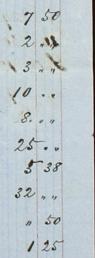 7 50
2 " "
3 " "
10 " "
8 " "
25 " "
5 38
32 " "
" 50
1 25